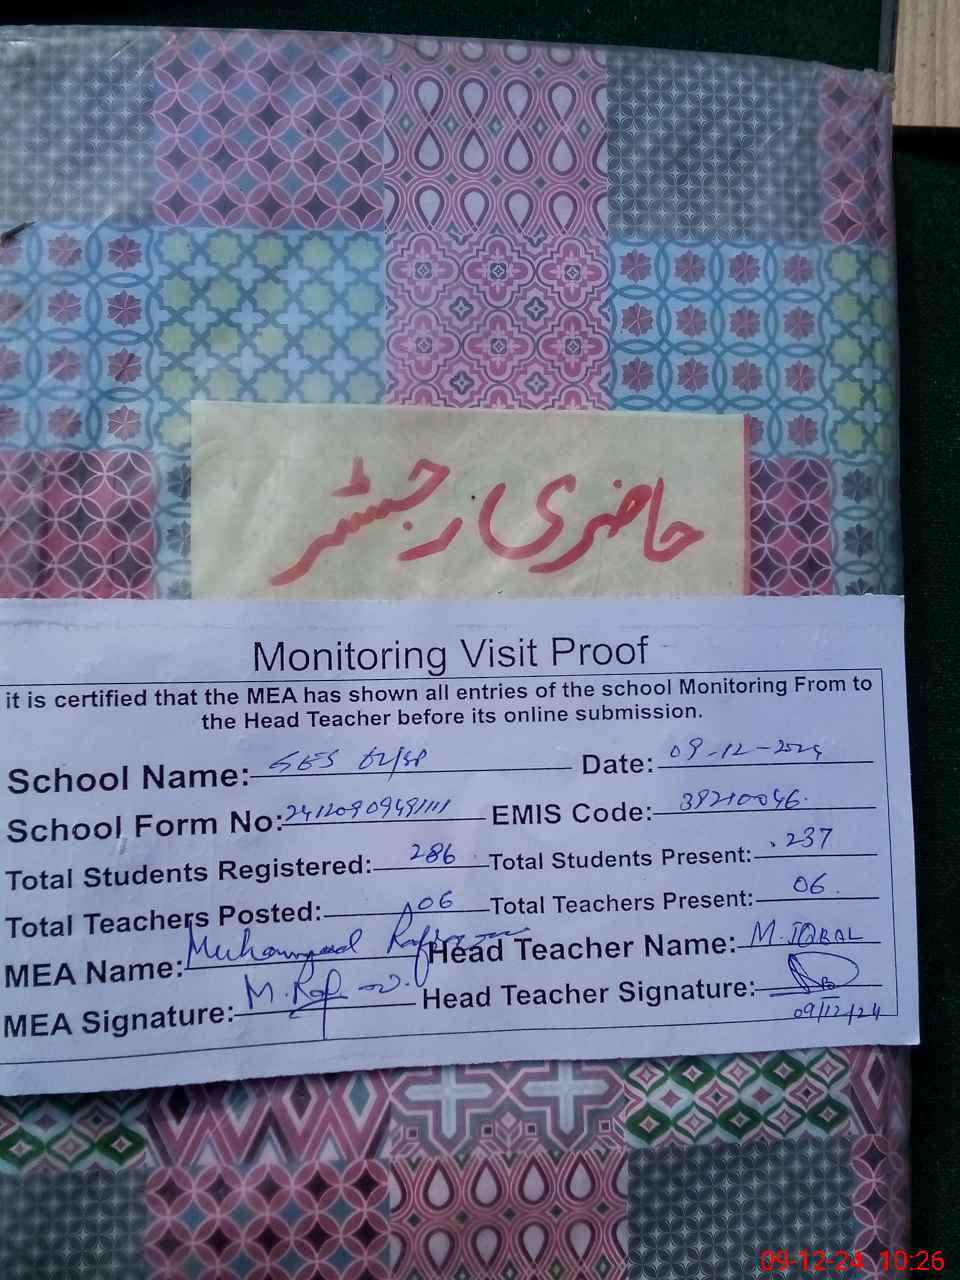 حاضری رجسٹر
Monitoring Visit Proof
it is certified that the MEA has shown all entries of the school Monitoring From to
the Head Teacher before its online submission.
School Name: GES Date: 09-12-2024
School Form No: EMIS Code: 39210046
Total Students Registered: 286 Total Students Present: 237
Total Teachers Posted: 06 Total Teachers Present: 06
MEA Name: Muhammad Head Teacher Name: M. IQBAL
MEA Signature: M. Head Teacher Signature:
09/12/24
09-12-24 10:26